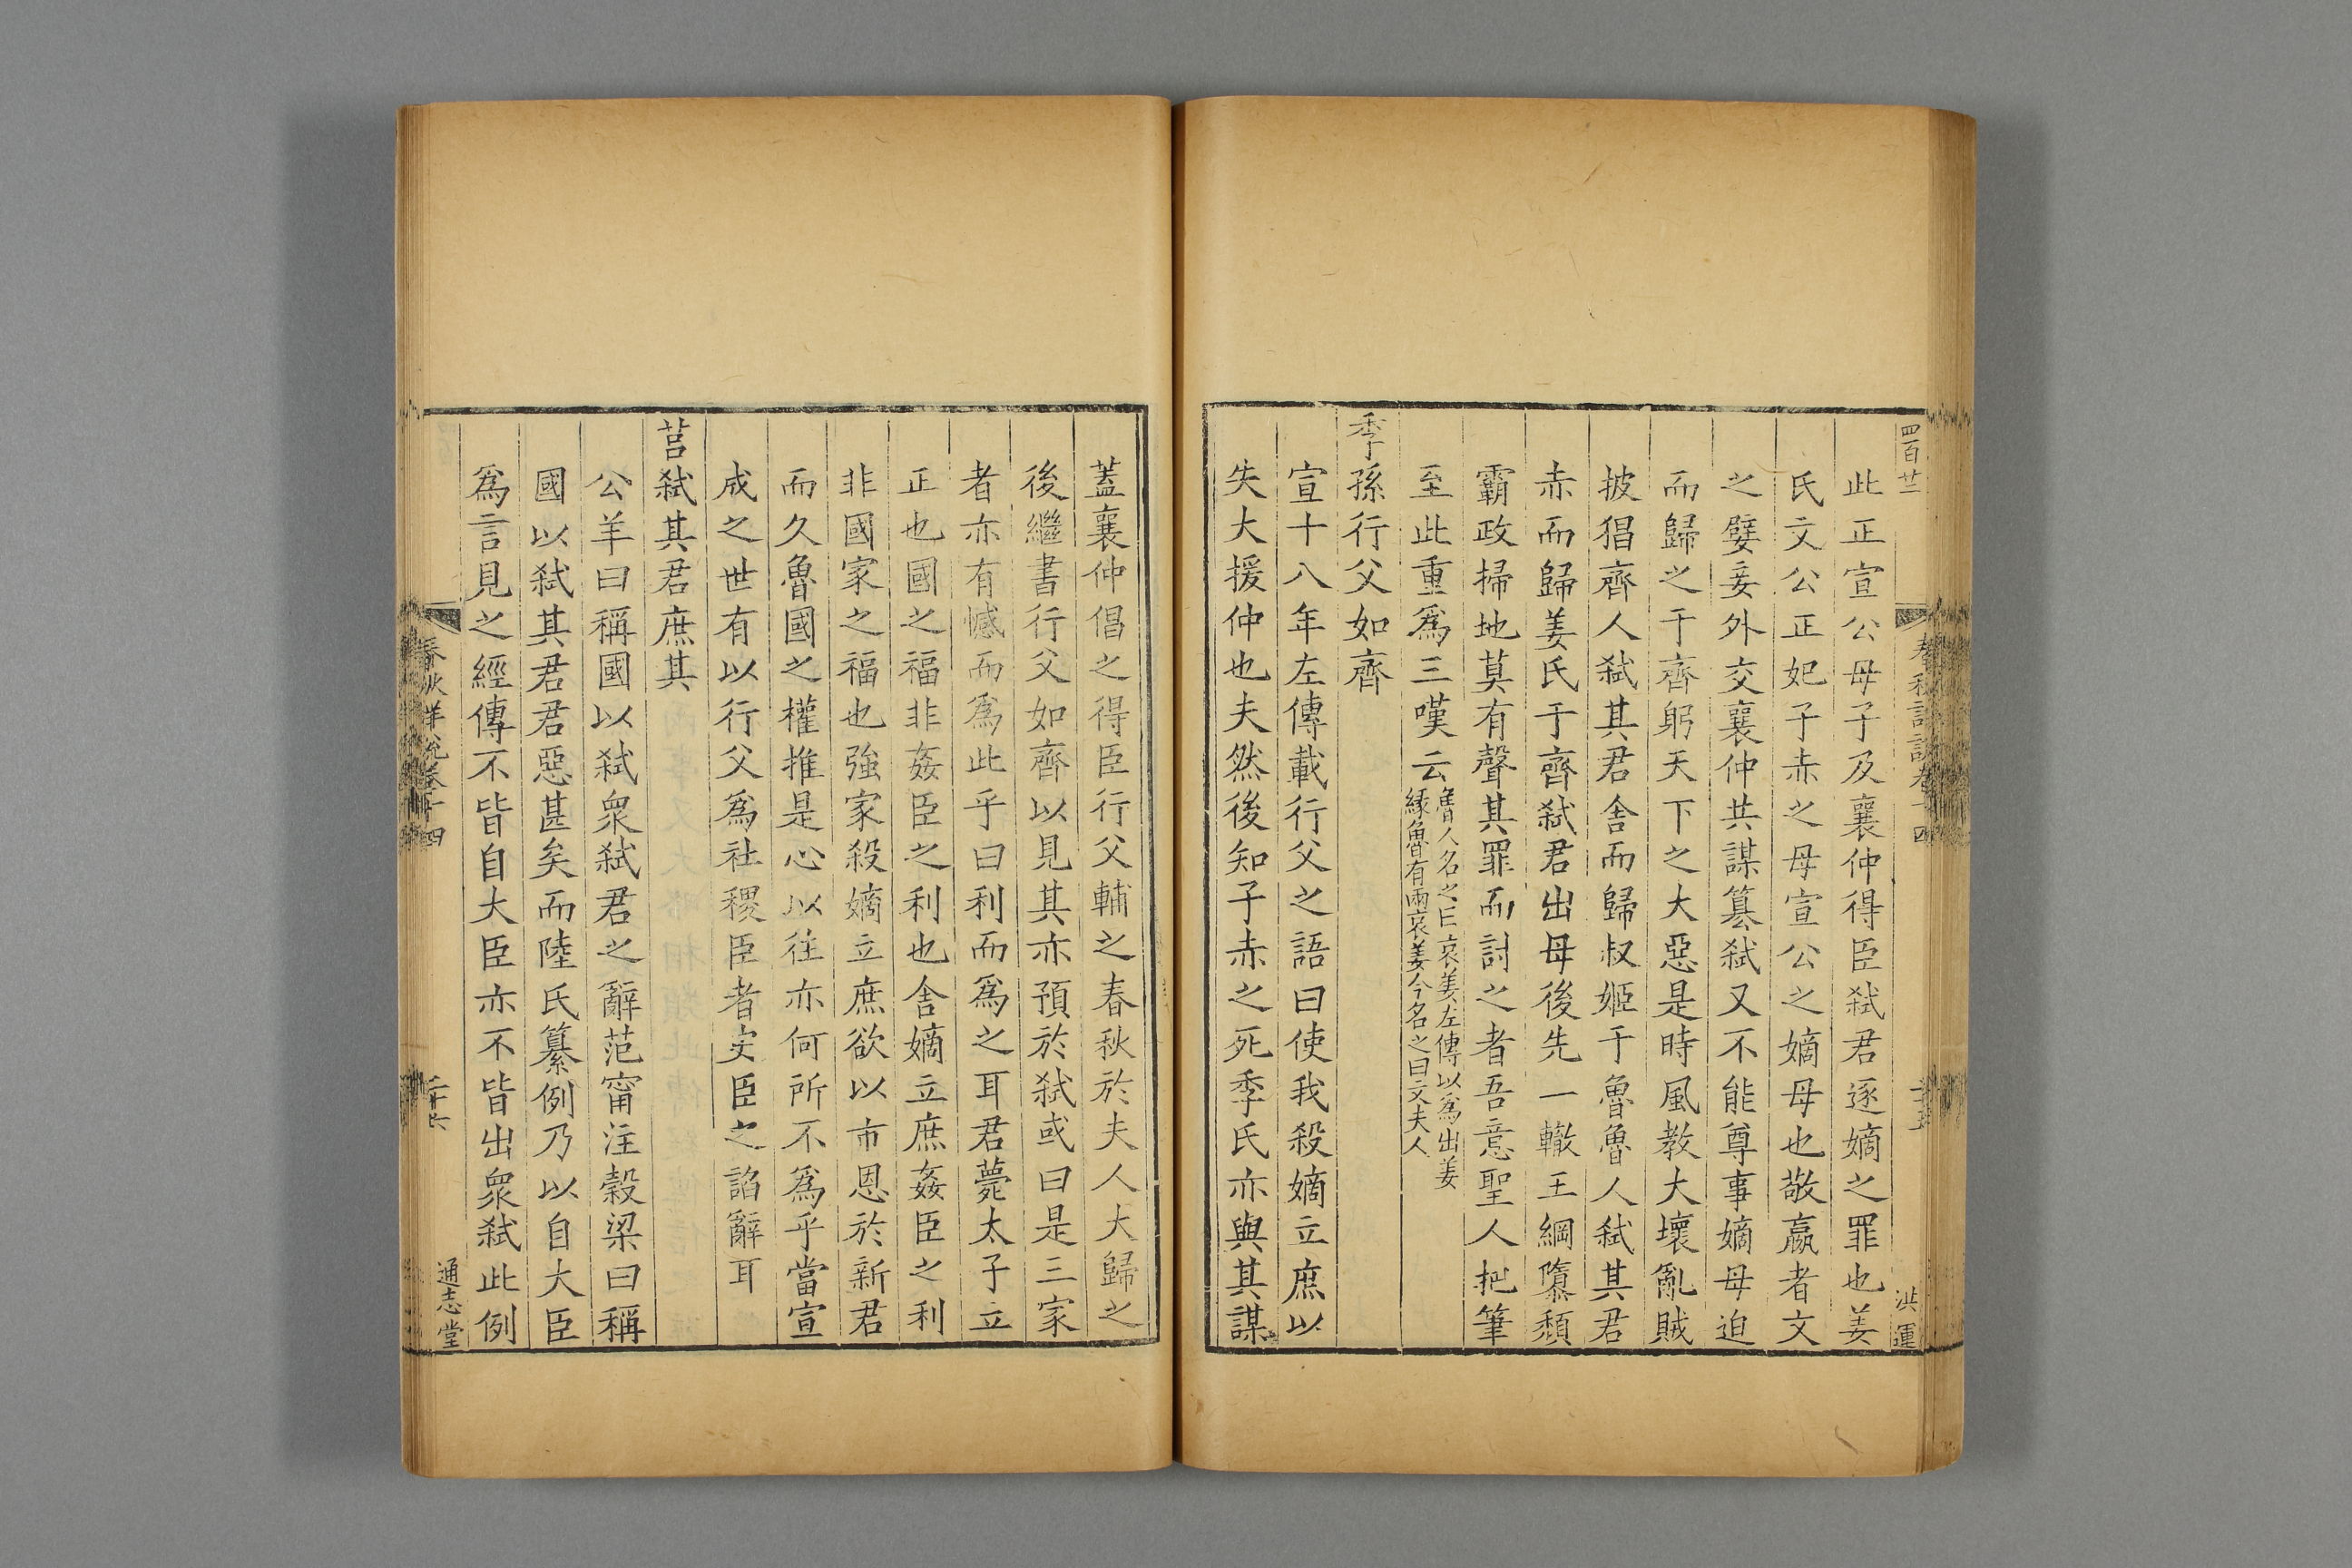 四百廿二
洪運
此正宣公母子及襄仲得臣弑君逐嫡之罪也姜
氏文公正妃子赤之母宣公之嫡母也敬嬴者文
之嬖妾外交襄仲共謀簒弑又不能尊事嫡母迫
而歸之于齊躬天下之大惡是時風教大壞亂賊
披猖齊人弑其君舍而歸叔姬于魯魯人弑其君
赤而歸姜氏于齊弑君出母後先一轍王綱隳頽
霸政掃地莫有聲其罪而討之者吾意聖人把筆
至此重爲三嘆云
魯人名之曰哀姜左傳以爲出姜
緣魯有兩哀姜今名之曰文夫人
季孫行父如齊
宣十八年左傳載行父之語曰使我殺嫡立庶以
失大援仲也夫然後知子赤之死季氏亦與其謀
蓋襄仲倡之得臣行父輔之春秋於夫人大歸之
後繼書行父如齊以見其亦預於弑或曰是三家
者亦有憾而爲此乎曰利而爲之耳君薨太子立
正也國之福非姦臣之利也舍嫡立庶姦臣之利
非國家之福也強家殺嫡立庶欲以市恩於新君
而久魯國之權推是心以往亦何所不爲乎當宣
成之世有以行父爲社稷臣者史臣之諂辭耳
莒弑其君庶其
公羊曰稱國以弑衆弑君之辭范甯注穀梁曰稱
國以弑其君君惡甚矣而陸氏纂例乃以自大臣
爲言見之經傳不皆自大臣亦不皆出衆弑此例
春秋詳說卷十四
二十六
通志堂